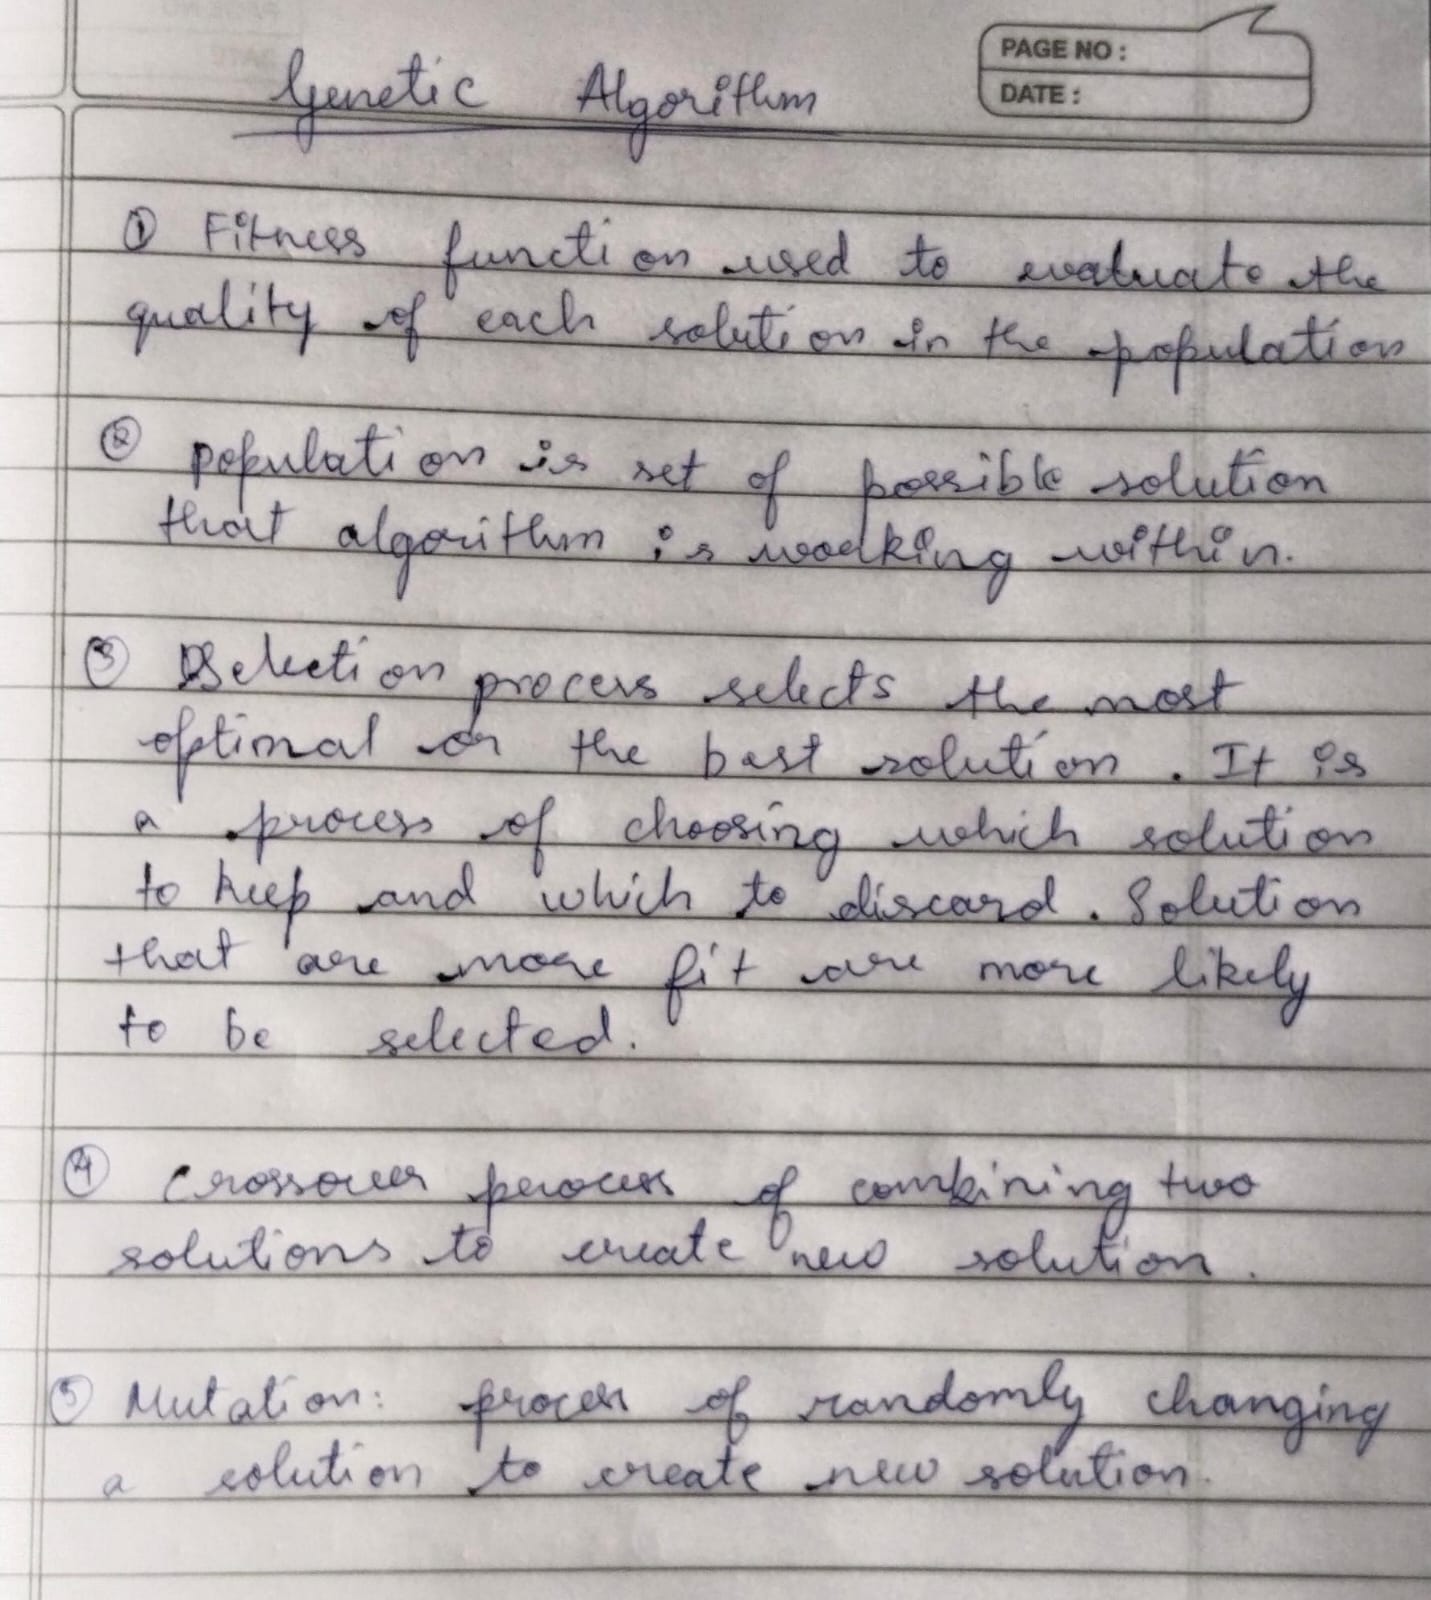 PAGE NO :
DATE :
Genetic Algorithm
① Fitness function used to evaluate the
quality of each solution in the population
② population is set of possible solution
that algorithm is working within.
③ Selection process selects the most
optimal or the best solution. It is
a process of choosing which solution
to keep and which to discard. Solution
that are more fit are more likely
to be selected.
④ Crossover process of combining two
solutions to create new solution.
⑤ Mutation: process of randomly changing
a solution to create new solution.